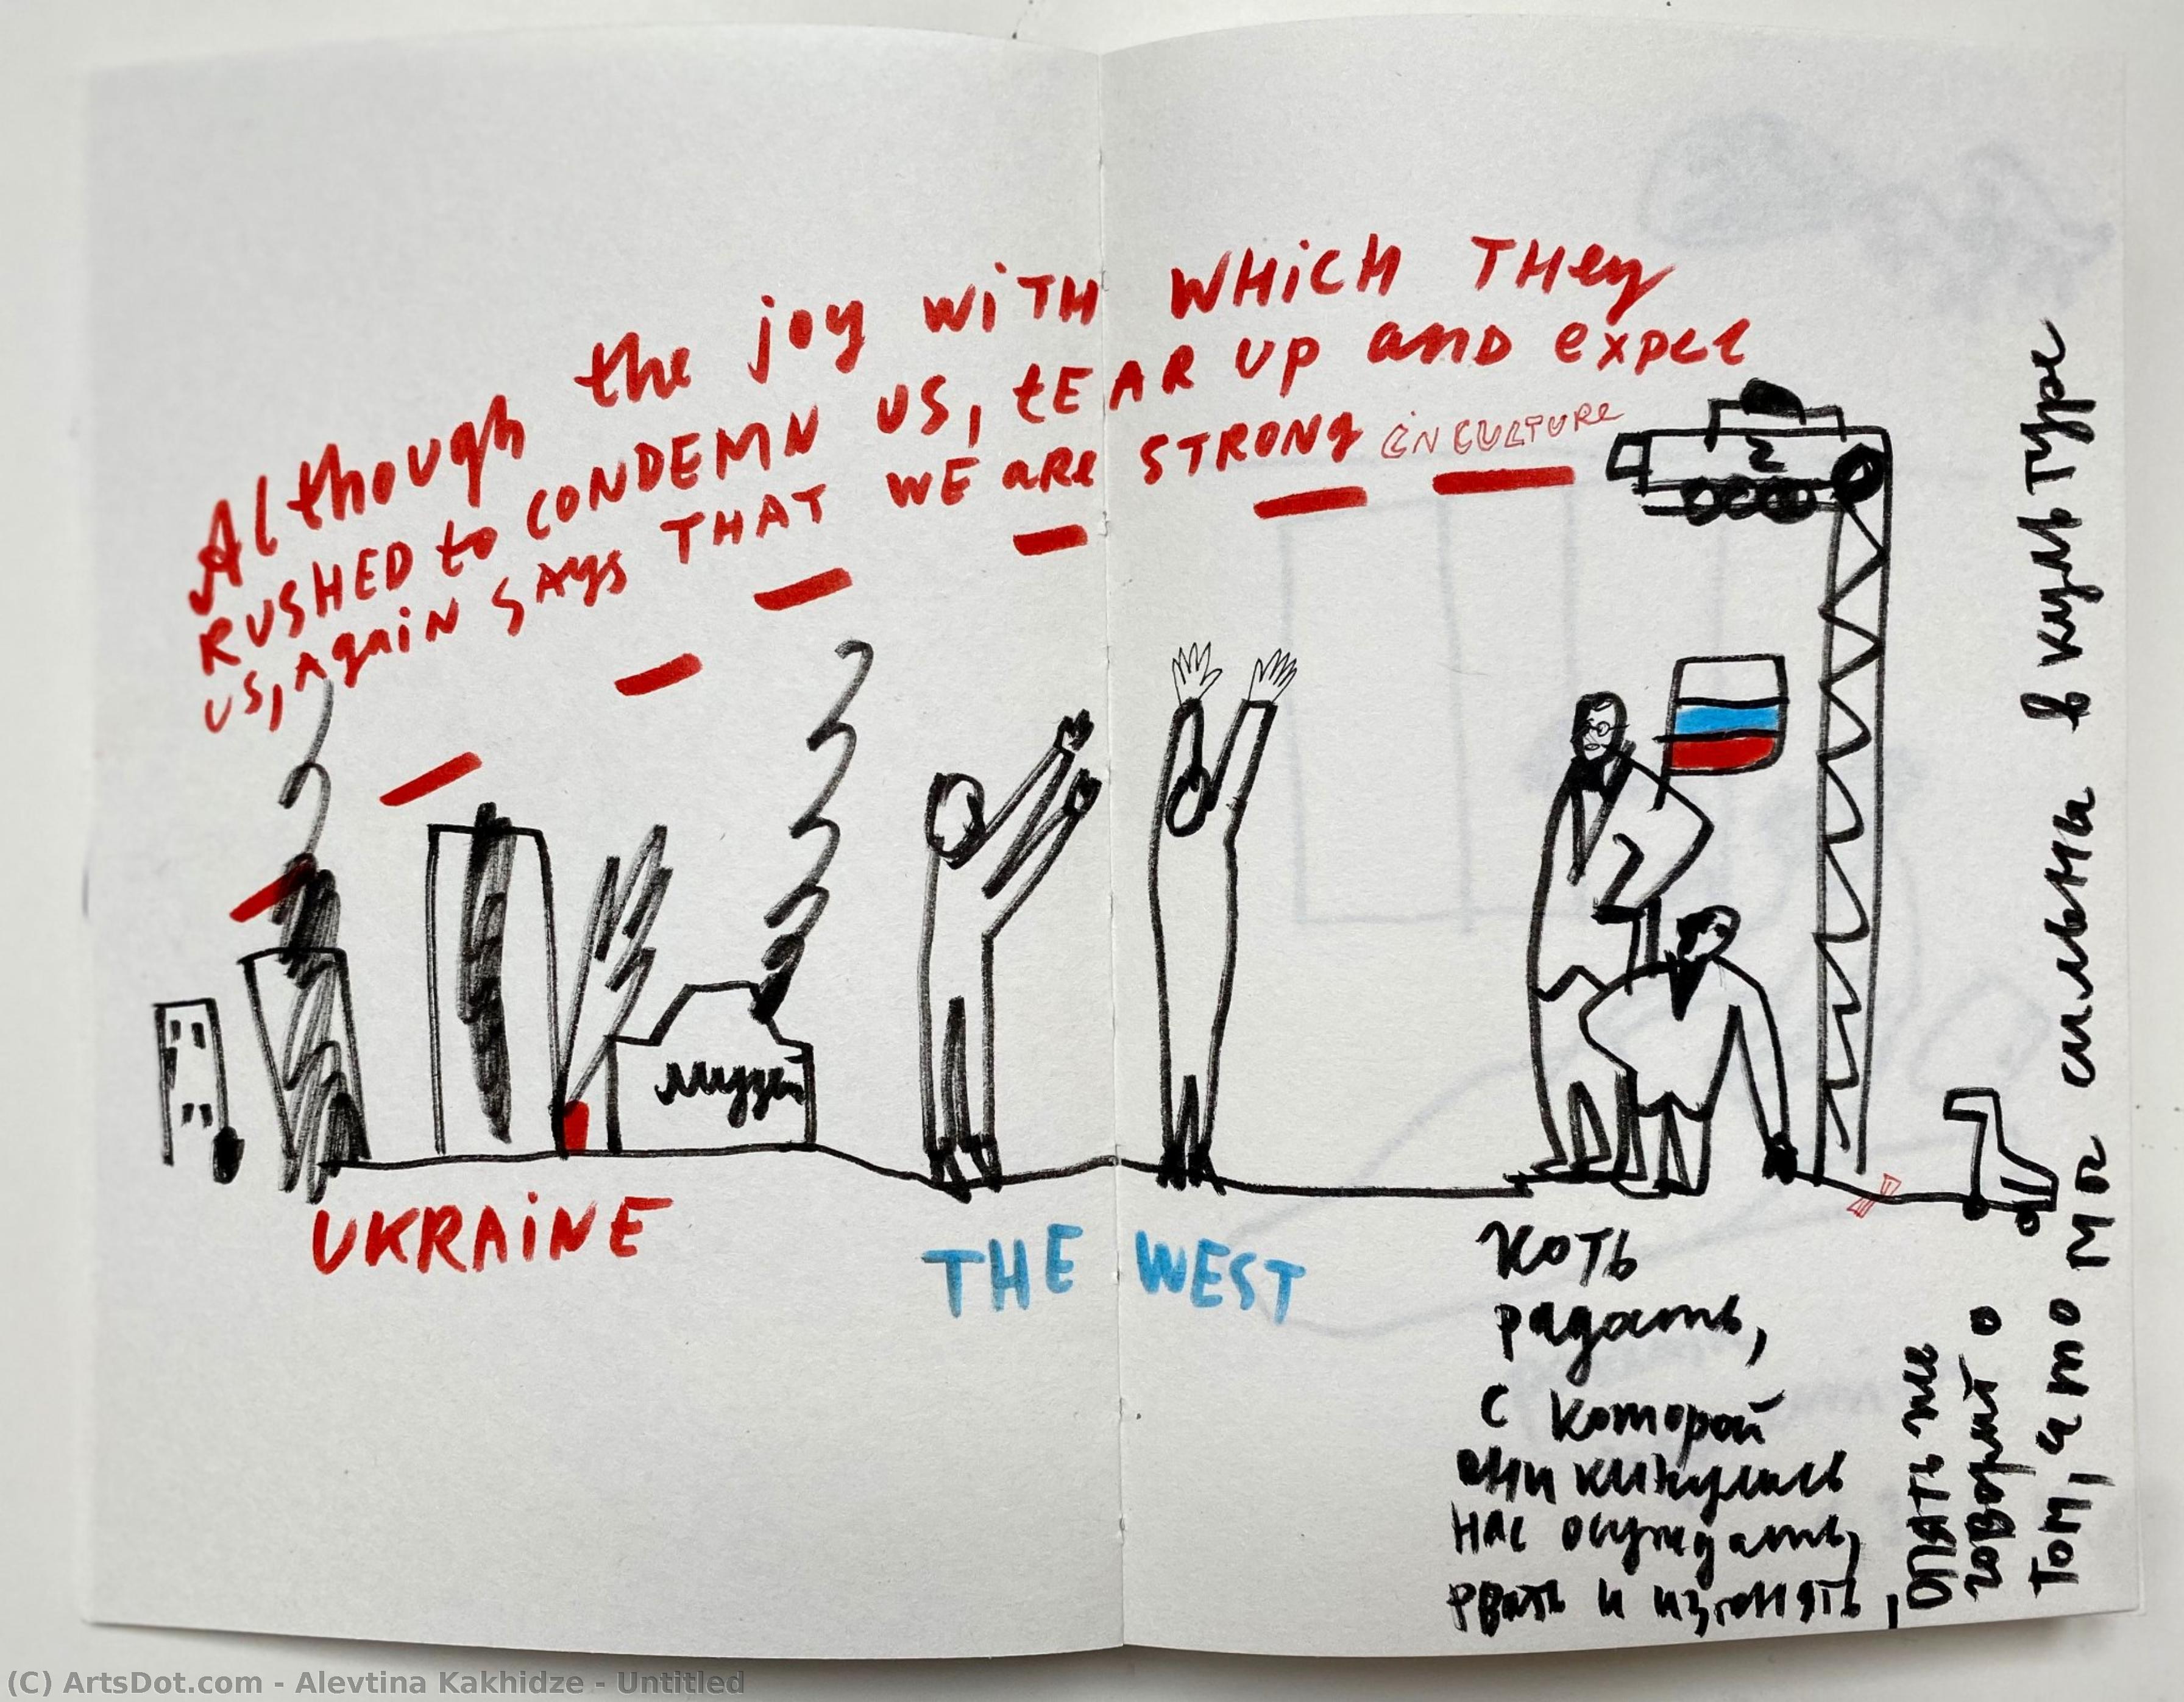 Although the joy WiTH WHiCH THey
RUSHED to CONDEMN US, tEAR UP AND expel
US, AgAiN SAYS THAT WE ARE STRONG iN CULTURE
2
2
музей
UKRAiNE
THE WEST
хоть
радость,
с которой
они кинулись
нас осуждать,
рвать и изгонять,
опять же
говорит о
том, что мы сильны в культуре
(C) ArtsDot.com - Alevtina Kakhidze - Untitled